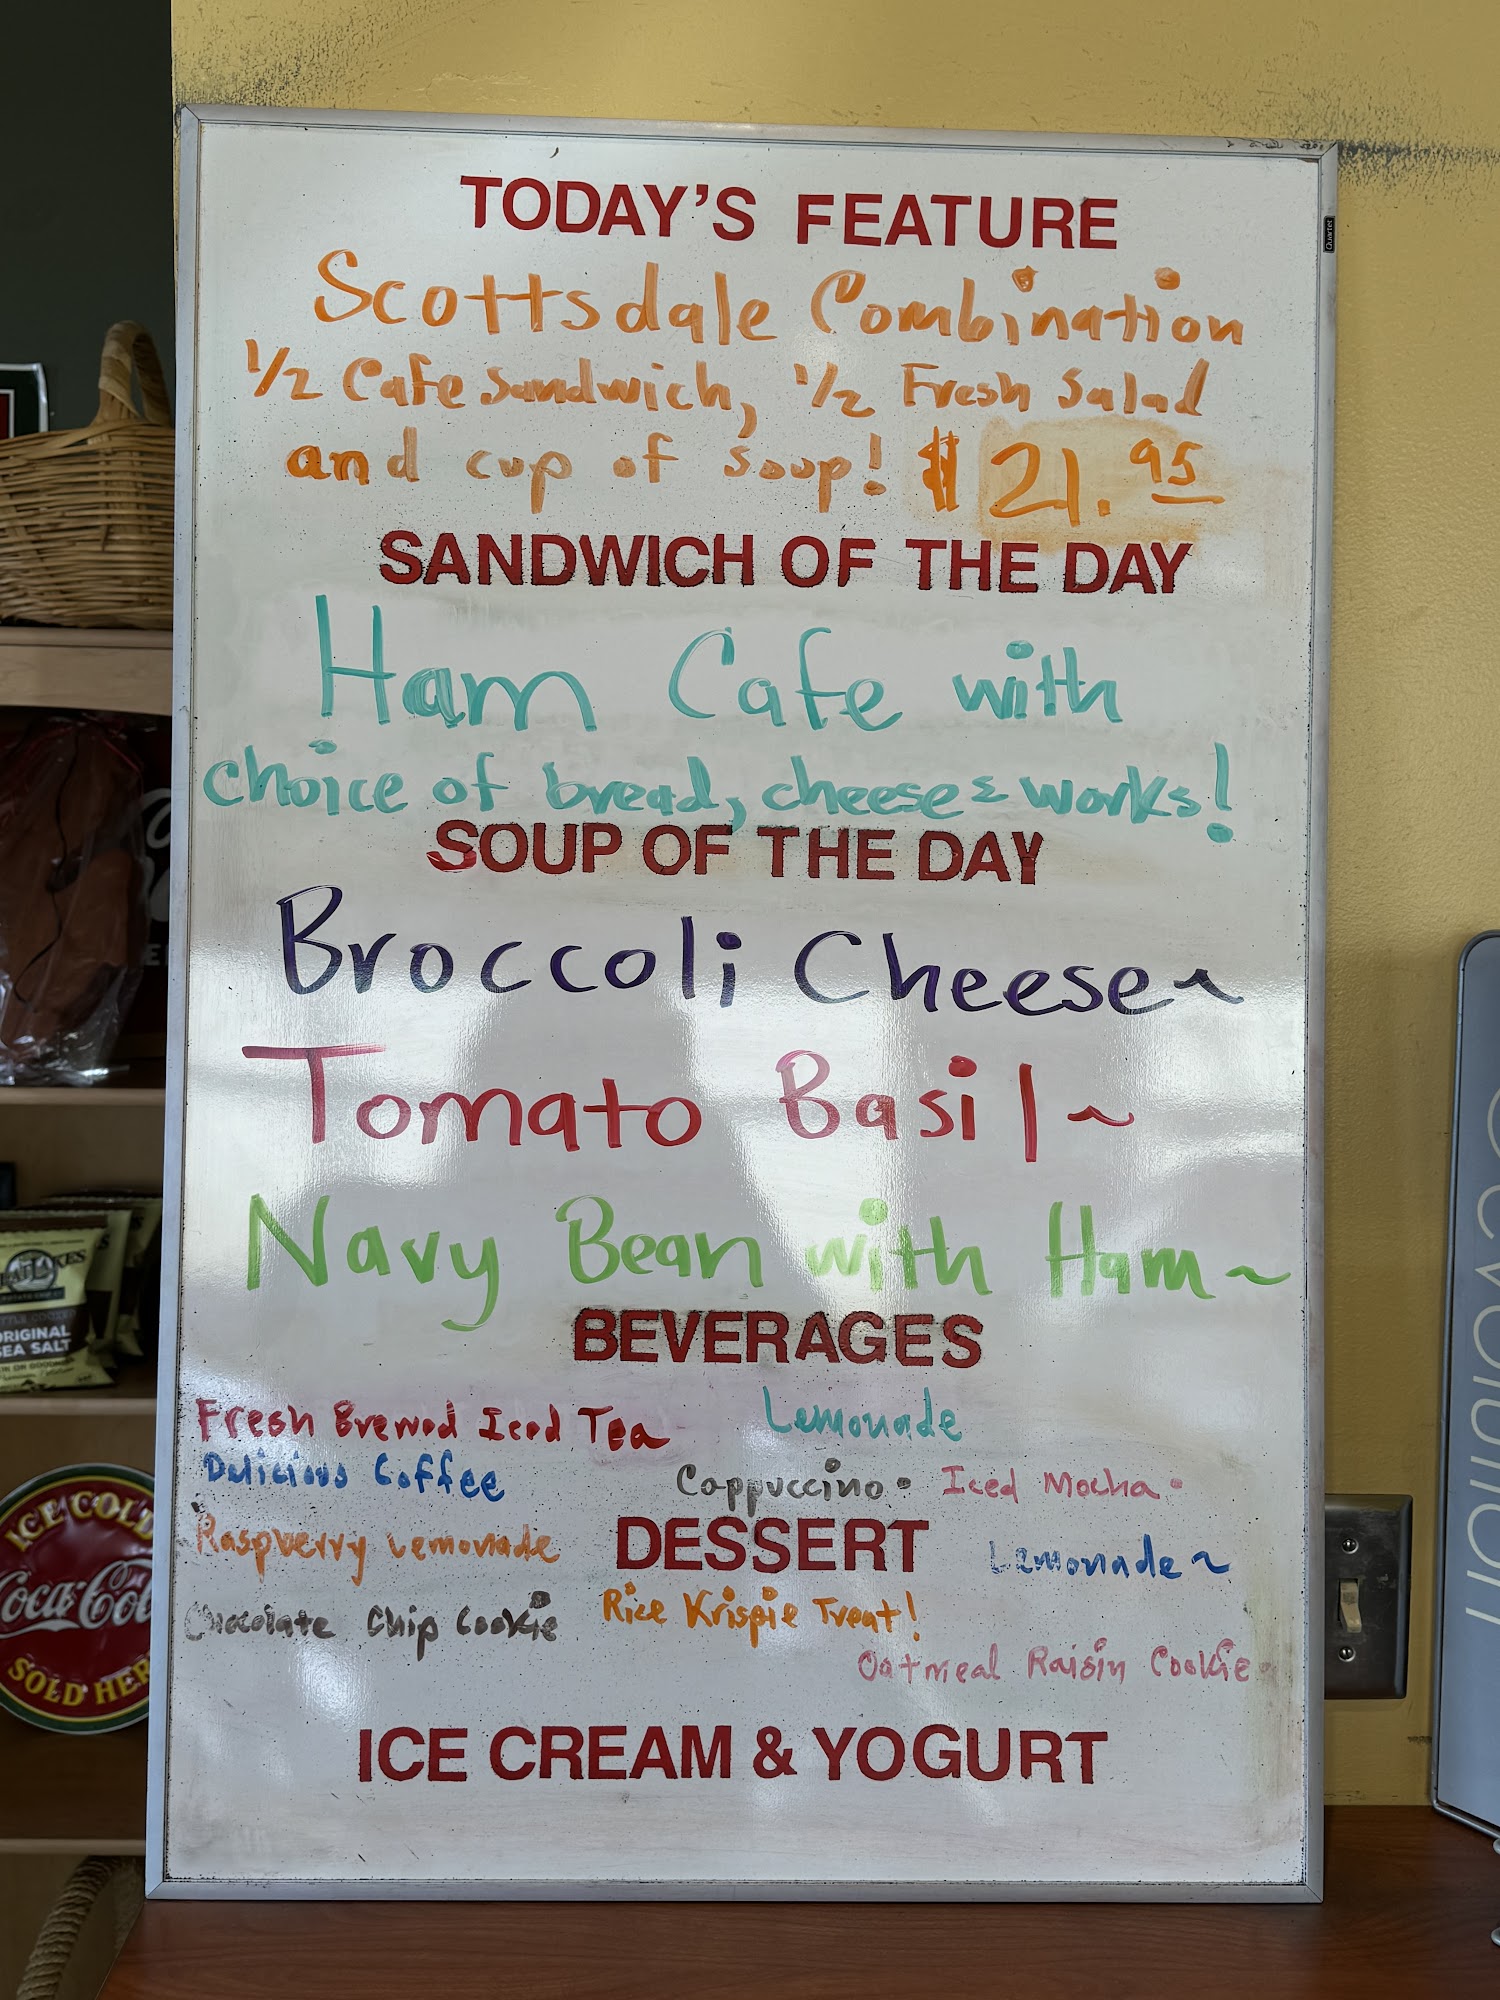 TODAY'S FEATURE
Scottsdale Combination
1/2 Cafe Sandwich, 1/2 Fresh Salad
and cup of soup! $21.95
SANDWICH OF THE DAY
Ham Cafe with
choice of bread, cheese & works!
SOUP OF THE DAY
Broccoli Cheese~
Tomato Basil~
Navy Bean with Ham~
BEVERAGES
Fresh Brewed Iced Tea Lemonade
Delicious Coffee Cappuccino• Iced Mocha•
Raspberry Lemonade DESSERT Lemonade~
Chocolate Chip Cookie Rice Krispie Treat!
Oatmeal Raisin Cookie
ICE CREAM & YOGURT
Quartet
ORIGINAL
SEA SALT
ICE COLD
Coca-Cola
SOLD HERE
evolution